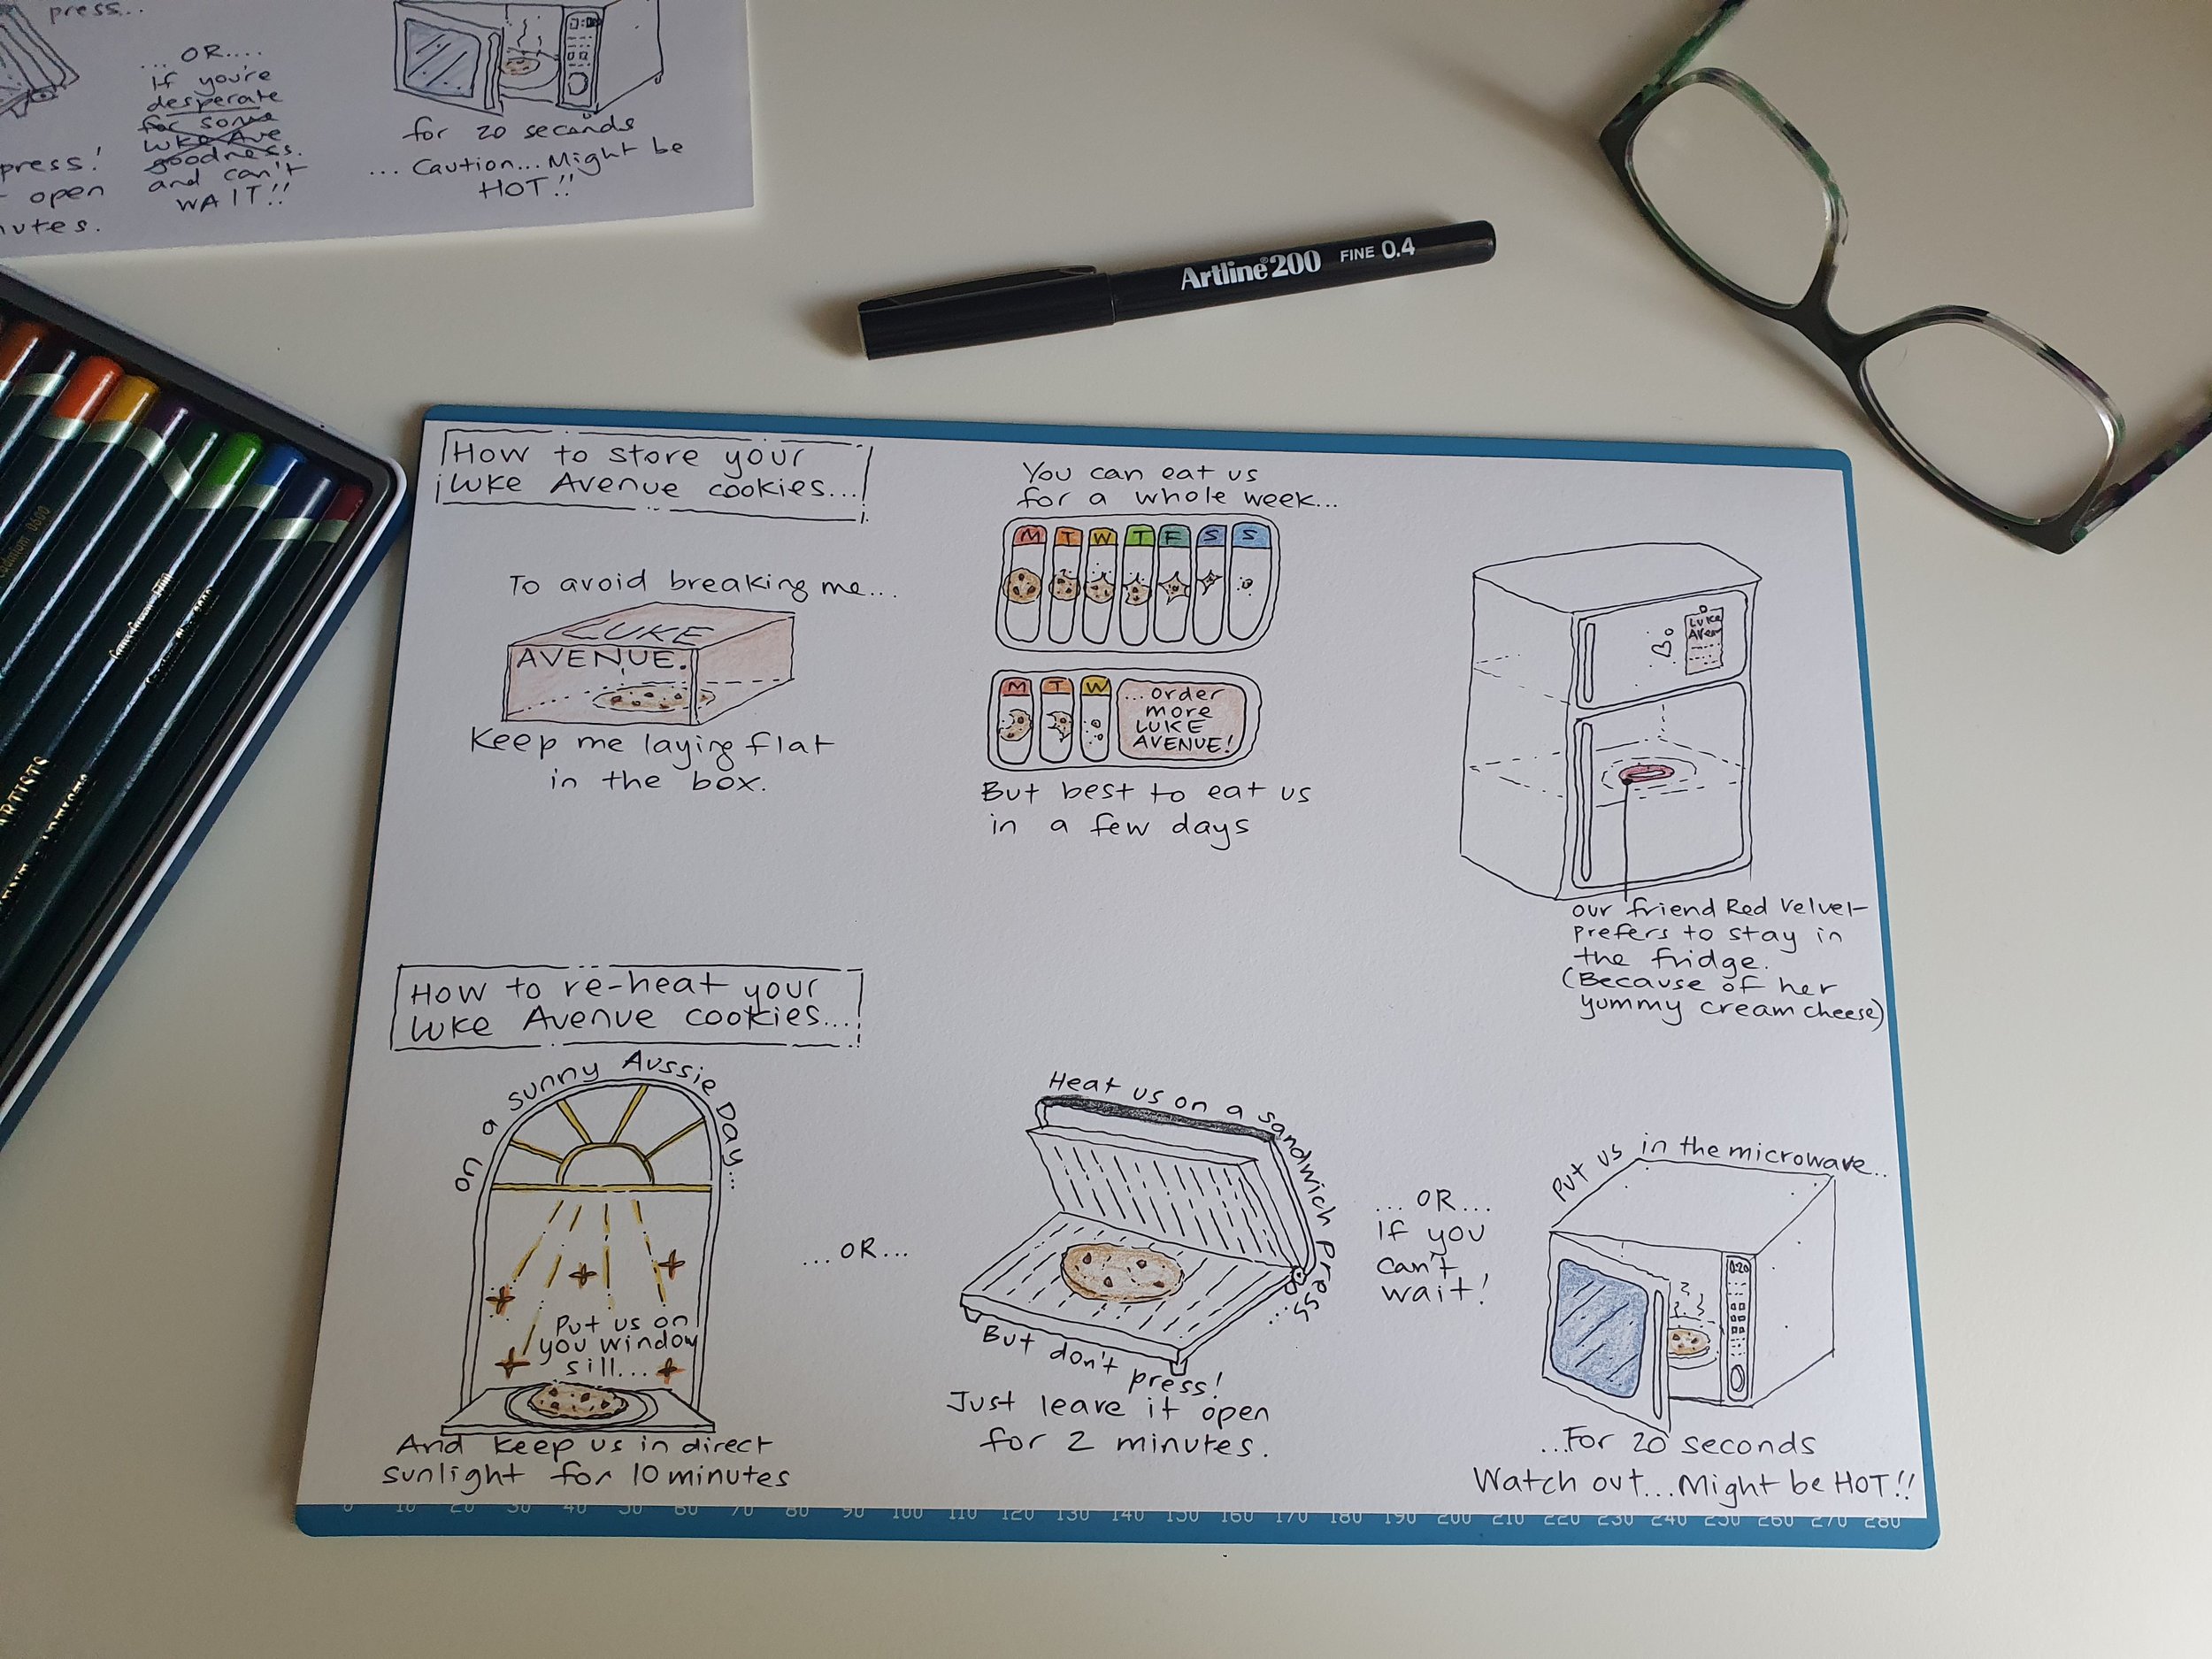 press...
... OR....
If you're
desperate
for some
Luke Ave
goodness.
and can't
WAIT!!
press!
open
for 20 seconds
... Caution... Might be
HOT!!
Artline 200 FINE 0.4
How to store your
Luke Avenue cookies...
To avoid breaking me...
LUKE
AVENUE.
Keep me laying flat
in the box.
You can eat us
for a whole week...
M T W T F S S
M T W
...order
more
LUKE
AVENUE!
But best to eat us
in a few days
LUKE
Aven
our friend Red Velvet
prefers to stay in
the fridge.
(Because of her
yummy cream cheese)
How to re-heat your
Luke Avenue cookies...
on a sunny Aussie Day...
Put us on
you window
sill...
And keep us in direct
sunlight for 10 minutes
...OR...
Heat us on a sandwich press...
But don't press!
Just leave it open
for 2 minutes.
... OR...
If you
can't
wait!
Put us in the microwave...
0:20
...For 20 seconds
Watch out...Might be HOT!!
0 10 20 30 40 50 60 70 80 90 100 110 120 130 140 150 160 170 180 190 200 210 220 230 240 250 260 270 280
ARTISTS